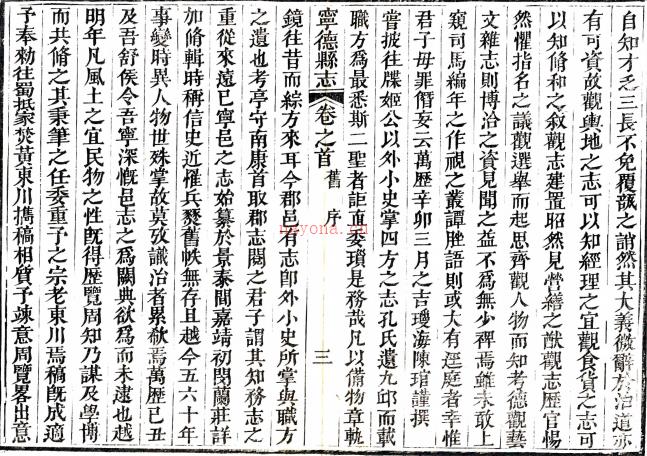 自知才乏三長不免覆瓿之誚然其大義微辭於治道亦
有可資故觀輿地之志可以知經理之宜觀食貨之志可
以知脩和之叙觀志建置昭然見營繕之猷觀志歷官惕
然懼指名之議觀選舉而起思齊觀人物而知考德觀藝
文雜志則博洽之資見聞之益不爲無少裨焉雖未敢上
窺司馬編年之作視之叢譚脞語則或大有逕庭者幸惟
君子毋罪僭妄云萬歷辛卯三月之吉瓊海陳琯謹撰
嘗披往牒姬公以外小史掌四方之志孔氏遺九邱而載
職方爲最悉斯二聖者詎直委瑣是務哉凡以備物章軌
寧德縣志 卷之首 舊序 三
鏡往昔而綜方來耳今郡邑有志卽外小史所掌與職方
之遺也考亭守南康首取郡志閱之君子謂其知務志之
重從來遠已寧邑之志始纂於景泰間嘉靖初閔蘭莊詳
加脩輯時稱信史近罹兵燹舊帙無存且越今五六十年
事變時異人物世殊掌故莫攷識治者累欷焉萬歷已丑
及吾舒侯令吾寧深慨邑志之爲闕典欲爲而未逮也越
明年凡風土之宜民物之性旣得歷覽周知乃謀及學博
而共脩之其秉筆之任委重予之宗老東川焉稿旣成適
予奉勑往蜀抵家焚黃東川攜稿相質予竦意周覽畧出意